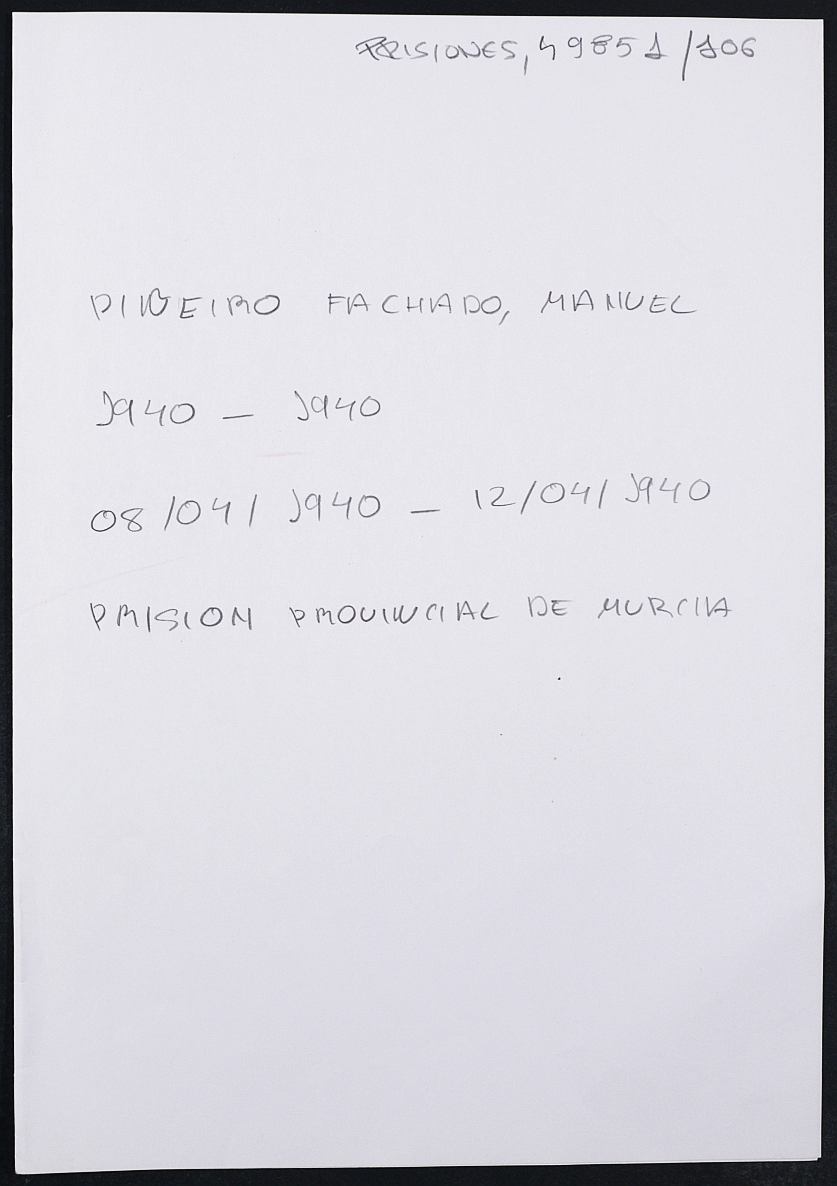 PRISIONES, 49851/106
PIÑEIRO FACHADO, MANUEL
1940 — 1940
08/04/1940 — 12/04/1940
PRISION PROVINCIAL DE MURCIA